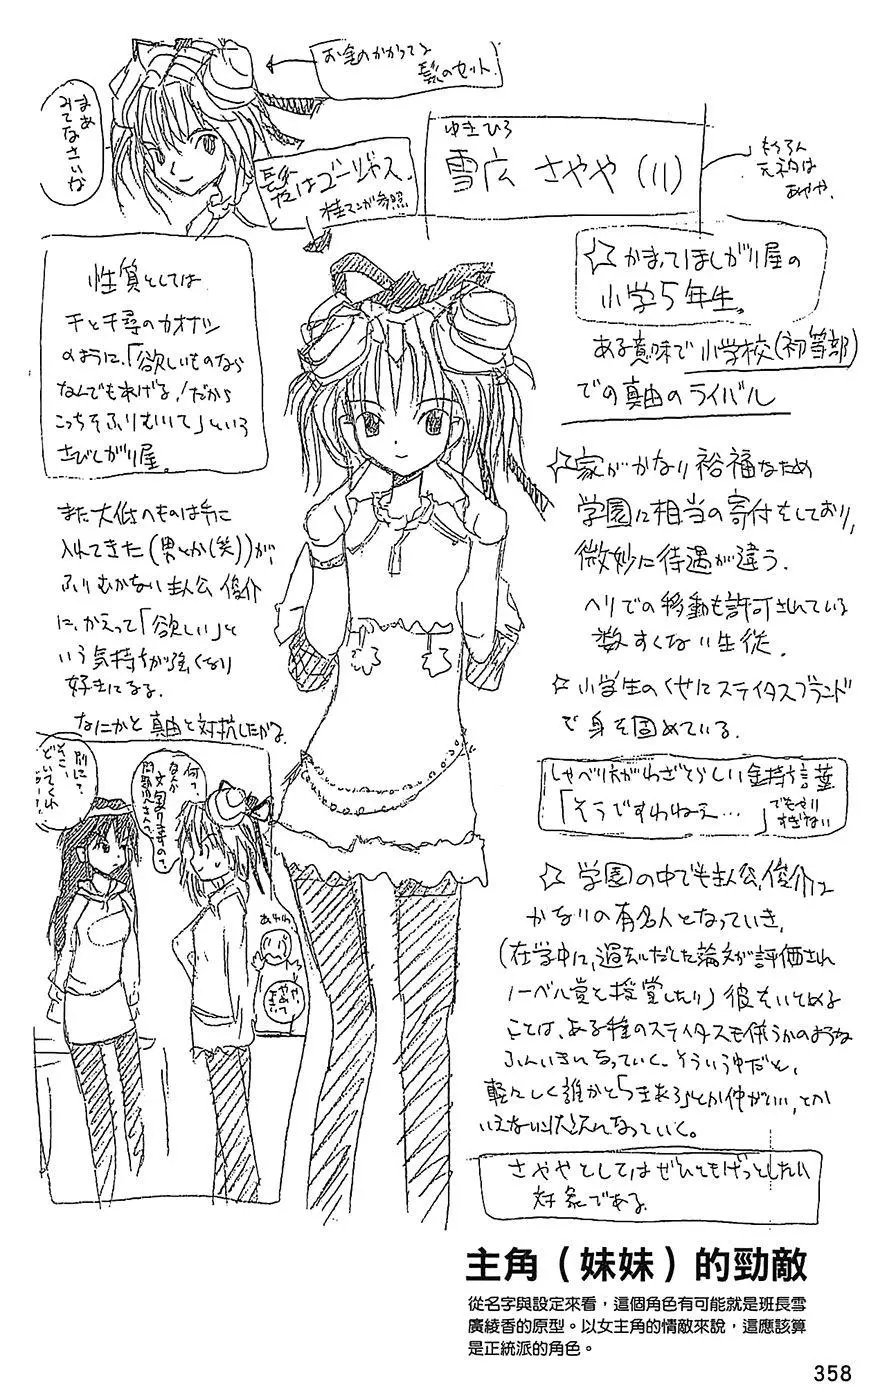 お金のかかってる
髪のセット
まあ
みてなさいな
髪はゴージャス
桂マンガ参照
ゆきひろ
雪広 さやや (11)
もちろん
元ネタは
あやや
性質としては
千と千尋のカオナシ
のように、「欲しいものなら
なんでもあげる!だから
こっちをふりむいて」という
さびしがり屋
また大体のものは手に
入れてきた(男とか(笑))が、
ふりむかない主人公 俊介
に、かえって「欲しい」と
いう気持ちが強くなり
好きになる
なにかと真由と対抗したがる
☆かまってほしがり屋の
小学5年生。
ある意味で小学校(初等部)
での真由のライバル
☆家がかなり裕福なため
学園に相当の寄付をしており、
微妙に待遇が違う.
ヘリでの移動も許可されている
数すくない生徒.
☆小学生のくせにステイタスブランド
で身を固めている.
しゃべり方がわざとらしい金持ち言葉
「そうですわねえ…」
でもやり
すぎない
☆学園の中でも主人公、俊介は
かなりの有名人となっていき、
(在学中に、過去にだした論文が評価され
ノーベル賞を授賞したり)彼をいとめる
ことは、ある種のステイタスも伴うかのような
ふんいきになっていく。そういう中だと、
軽々しく誰かと「つきあう」とか仲がいい、とか
いえない状況になっていく。
さややとしてはぜひともげっとしたい
対象である
別に?
そこ、
どいてくれ
何?
なんか
文句ありますの?
あわわ
やめて
主角（妹妹）的勁敵
從名字與設定來看，這個角色有可能就是班長雪
廣綾香的原型。以女主角的情敵來說，這應該算
是正統派的角色。
358